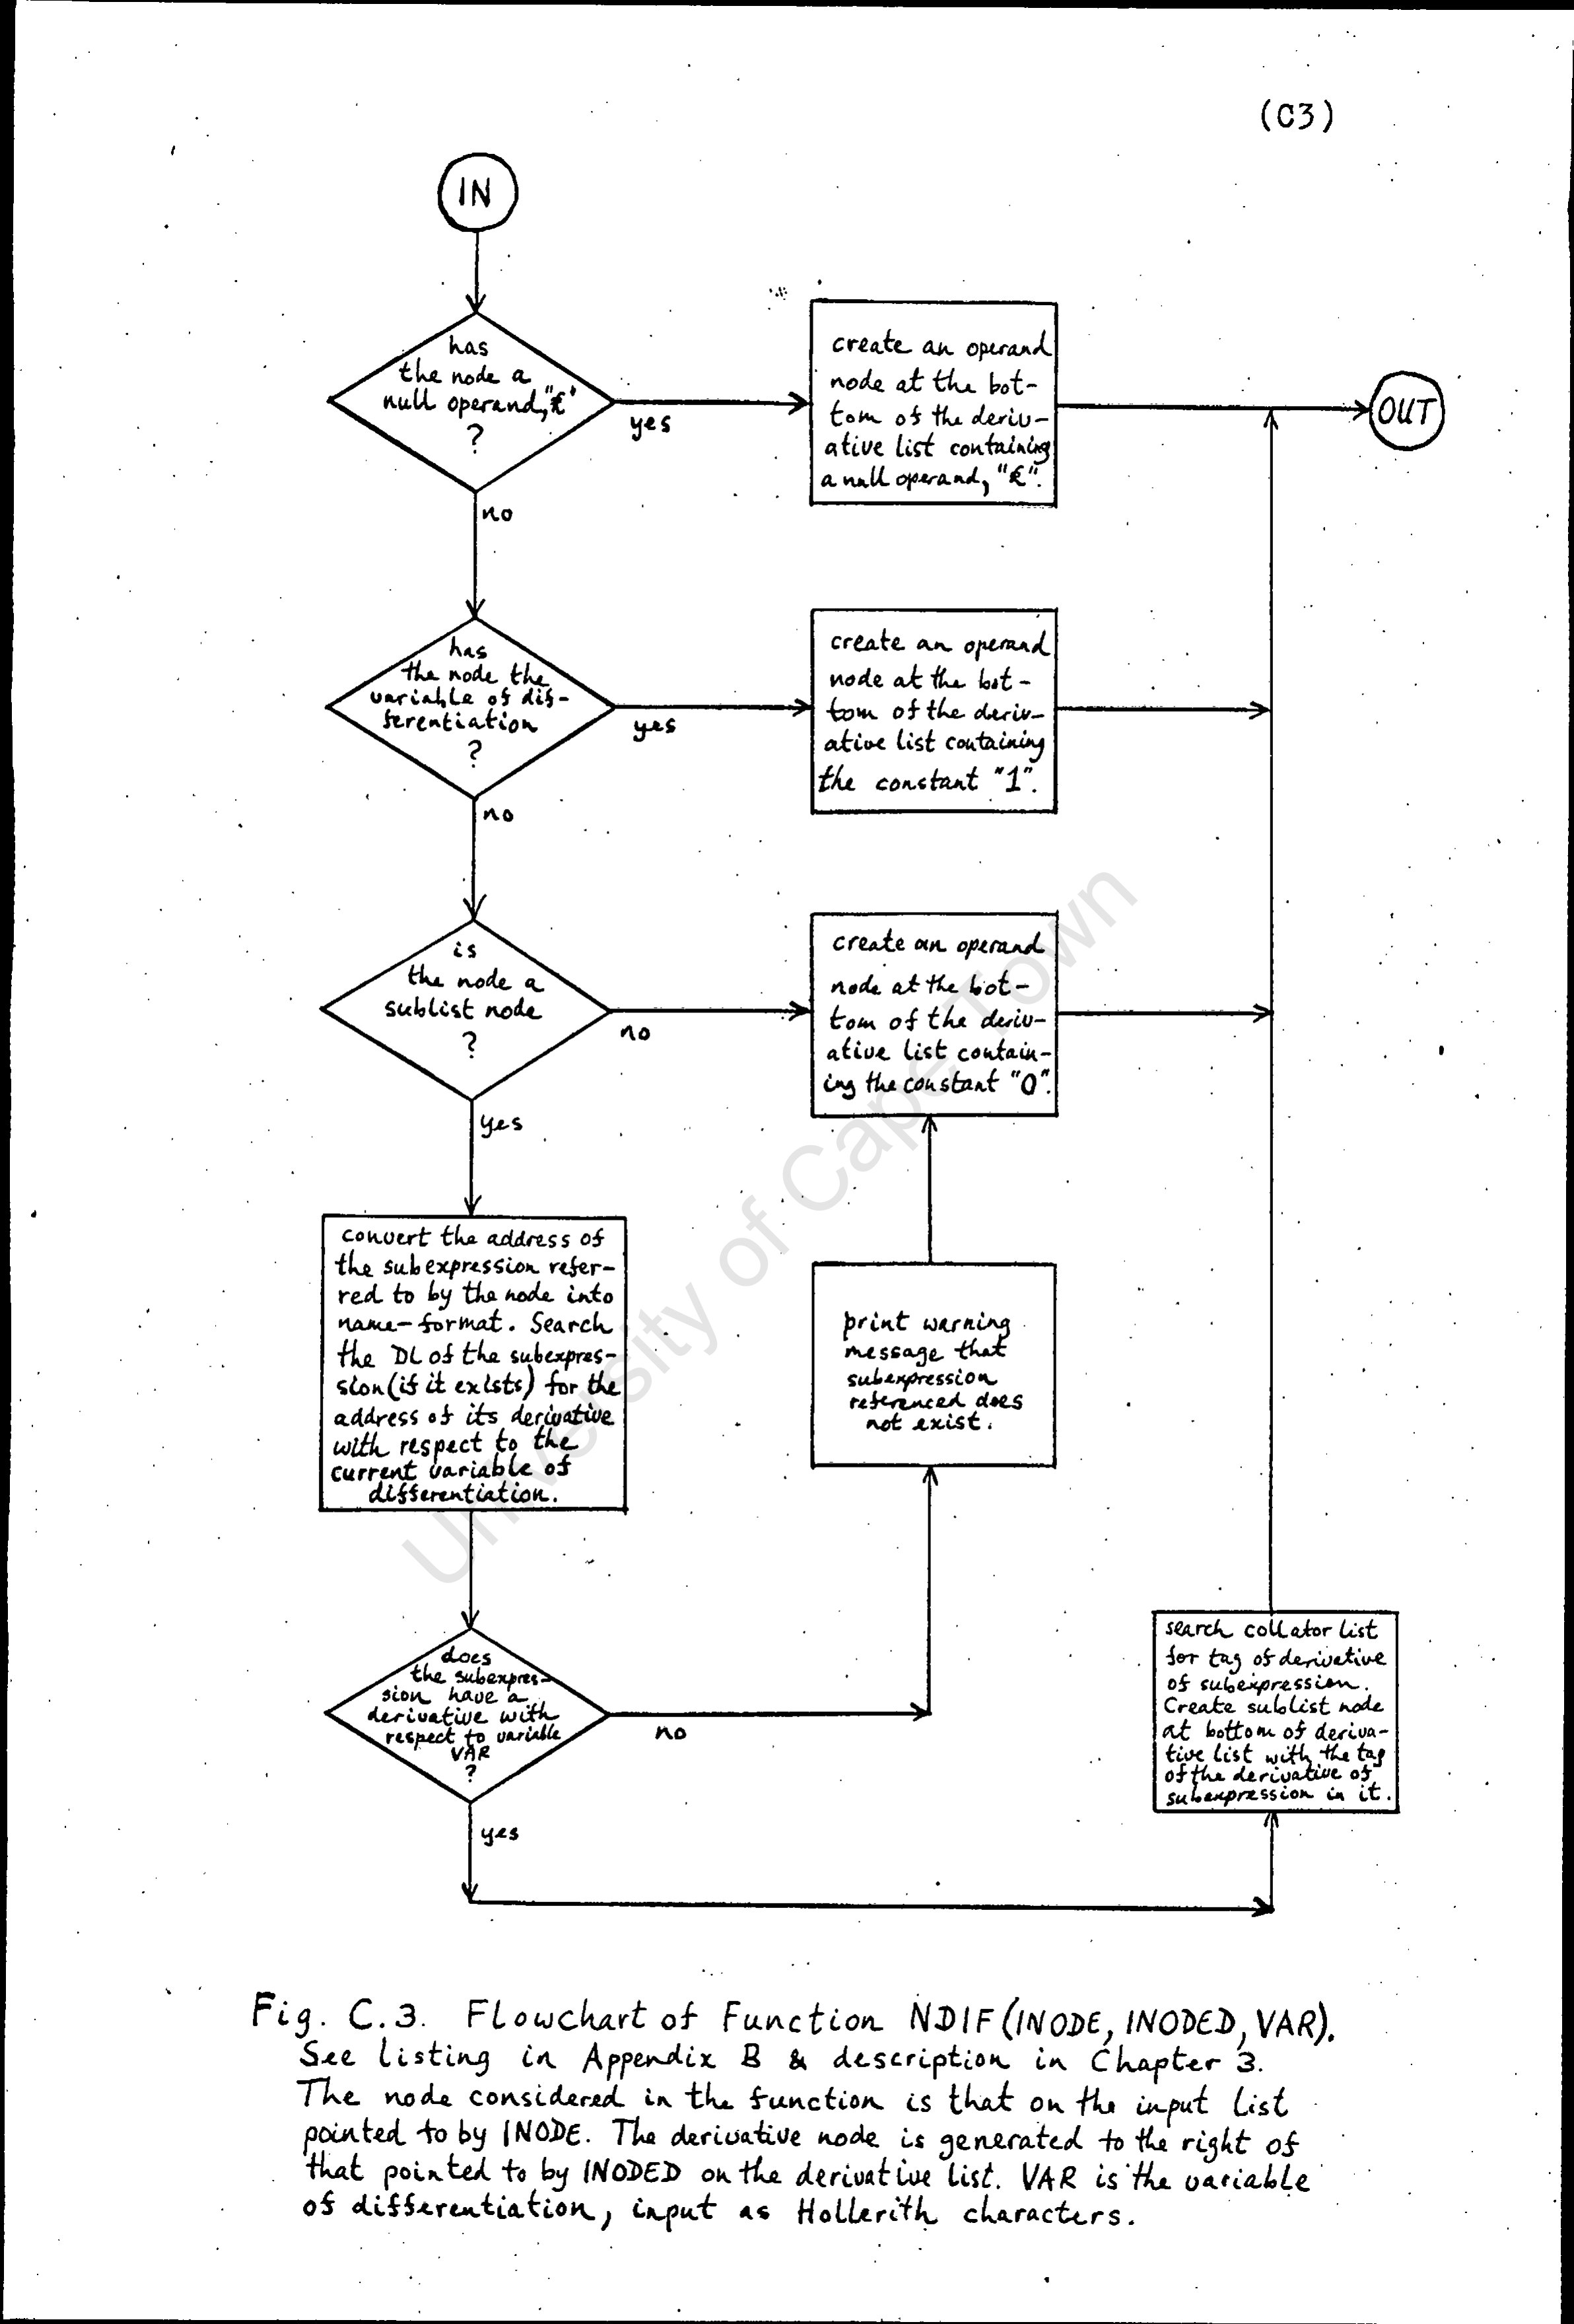 (C3)
IN
has
the node a
null operand, "£"
?
yes
no
create an operand
node at the bot-
tom of the deriv-
ative list containing
a null operand, "£".
OUT
has
the node the
variable of dif-
ferentiation
?
yes
no
create an operand
node at the bot-
tom of the deriv-
ative list containing
the constant "1".
is
the node a
sublist node
?
no
yes
create an operand
node at the bot-
tom of the deriv-
ative list contain-
ing the constant "0".
convert the address of
the subexpression refer-
red to by the node into
name-format. Search
the DL of the subexpres-
sion (if it exists) for the
address of its derivative
with respect to the
current variable of
differentiation.
print warning
message that
subexpression
referenced does
not exist.
does
the subexpres-
sion have a
derivative with
respect to variable
VAR
?
no
yes
search collator list
for tag of derivative
of subexpression.
Create sublist node
at bottom of deriva-
tive list with the tag
of the derivative of
subexpression in it.
University of Cape Town
Fig. C.3. Flowchart of Function NDIF(INODE, INODED, VAR).
See listing in Appendix B & description in Chapter 3.
The node considered in the function is that on the input list
pointed to by INODE. The derivative node is generated to the right of
that pointed to by INODED on the derivative list. VAR is the variable
of differentiation, input as Hollerith characters.